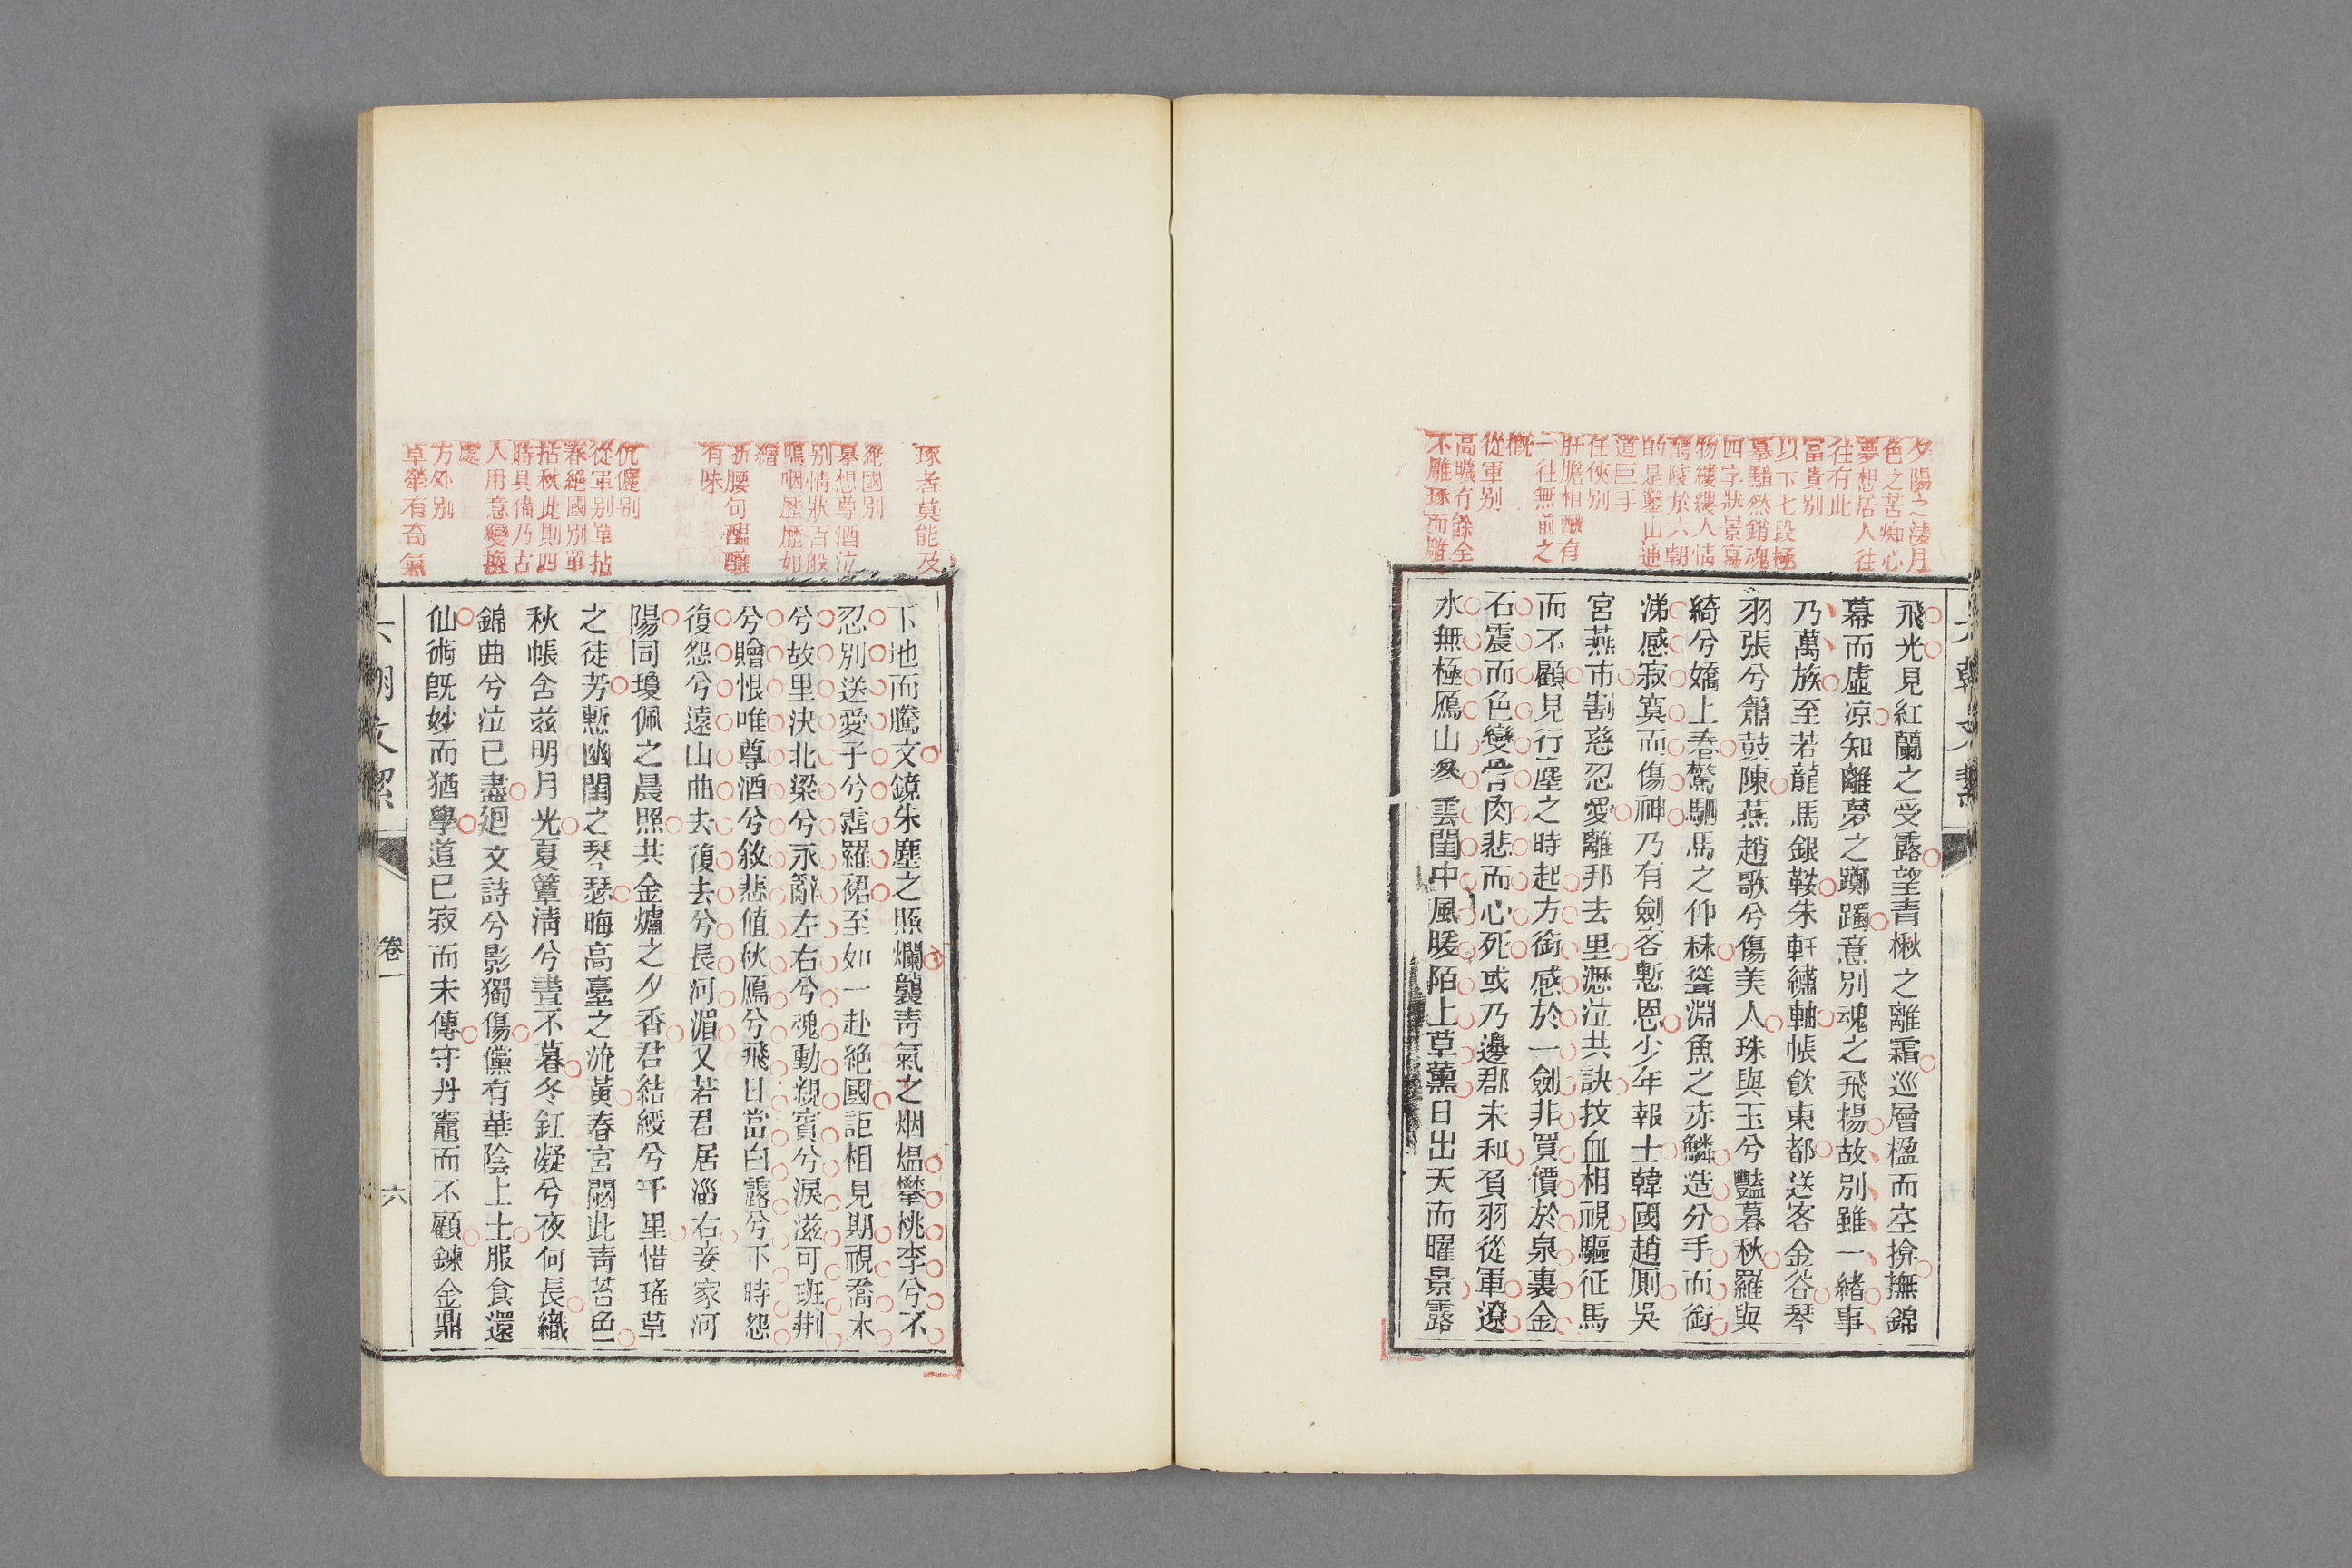 夕陽之淒月
色之苦痴心
夢想居人往
往有此
富貴別
以下七段極
摹黯然銷魂
四字狀景寫
物縷縷入情
醴陵於六朝
的是鑿山通
道巨手
任俠別
肝膽相酬有
一往無前之
慨
從軍別
高曠有餘全
不雕琢而雕
飛光見紅蘭之受露望青楸之離霜巡層楹而空揜撫錦
幕而虛凉知離夢之躑躅意別魂之飛揚故別雖一緒事
乃萬族至若龍馬銀鞍朱軒繡軸帳飲東都送客金谷琴
羽張兮簫鼓陳燕趙歌兮傷美人珠與玉兮豔暮秋羅與
綺兮嬌上春驚駟馬之仰秣聳淵魚之赤鱗造分手而銜
涕感寂寞而傷神乃有劍客慙恩少年報士韓國趙厠吳
宮燕市割慈忍愛離邦去里瀝泣共訣抆血相視驅征馬
而不顧見行塵之時起方銜感於一劍非買價於泉裏金
石震而色變骨肉悲而心死或乃邊郡未和負羽從軍遼
水無極鴈山參雲閨中風暖陌上草薰日出天而曜景露
琢者莫能及
絕國別
摹想尊酒泣
別情狀百般
嗚咽歷歷如
繪
折腰句醞釀
有味
伉儷別
從軍別單拈
春絕國別單
拈秋此則四
時具備乃古
人用意變換
處
方外別
草犖有奇氣
下地而騰文鏡朱塵之照爛襲青氣之烟熅攀桃李兮不
忍別送愛子兮霑羅裙至如一赴絕國詎相見期視喬木
兮故里決北梁兮永辭左右兮魂動親賓兮淚滋可班荆
兮贈恨唯尊酒兮敘悲値秋鴈兮飛日當白露兮下時怨
復怨兮遠山曲去復去兮長河湄又若君居淄右妾家河
陽同瓊佩之晨照共金爐之夕香君結綬兮千里惜瑤草
之徒芳慙幽閨之琴瑟晦高臺之流黃春宮閟此青苔色
秋帳含茲明月光夏簟淸兮晝不暮冬釭凝兮夜何長織
錦曲兮泣已盡廻文詩兮影獨傷儻有華陰上士服食還
仙術旣妙而猶學道已寂而未傳守丹竈而不顧鍊金鼎
六朝文絜
卷一
六